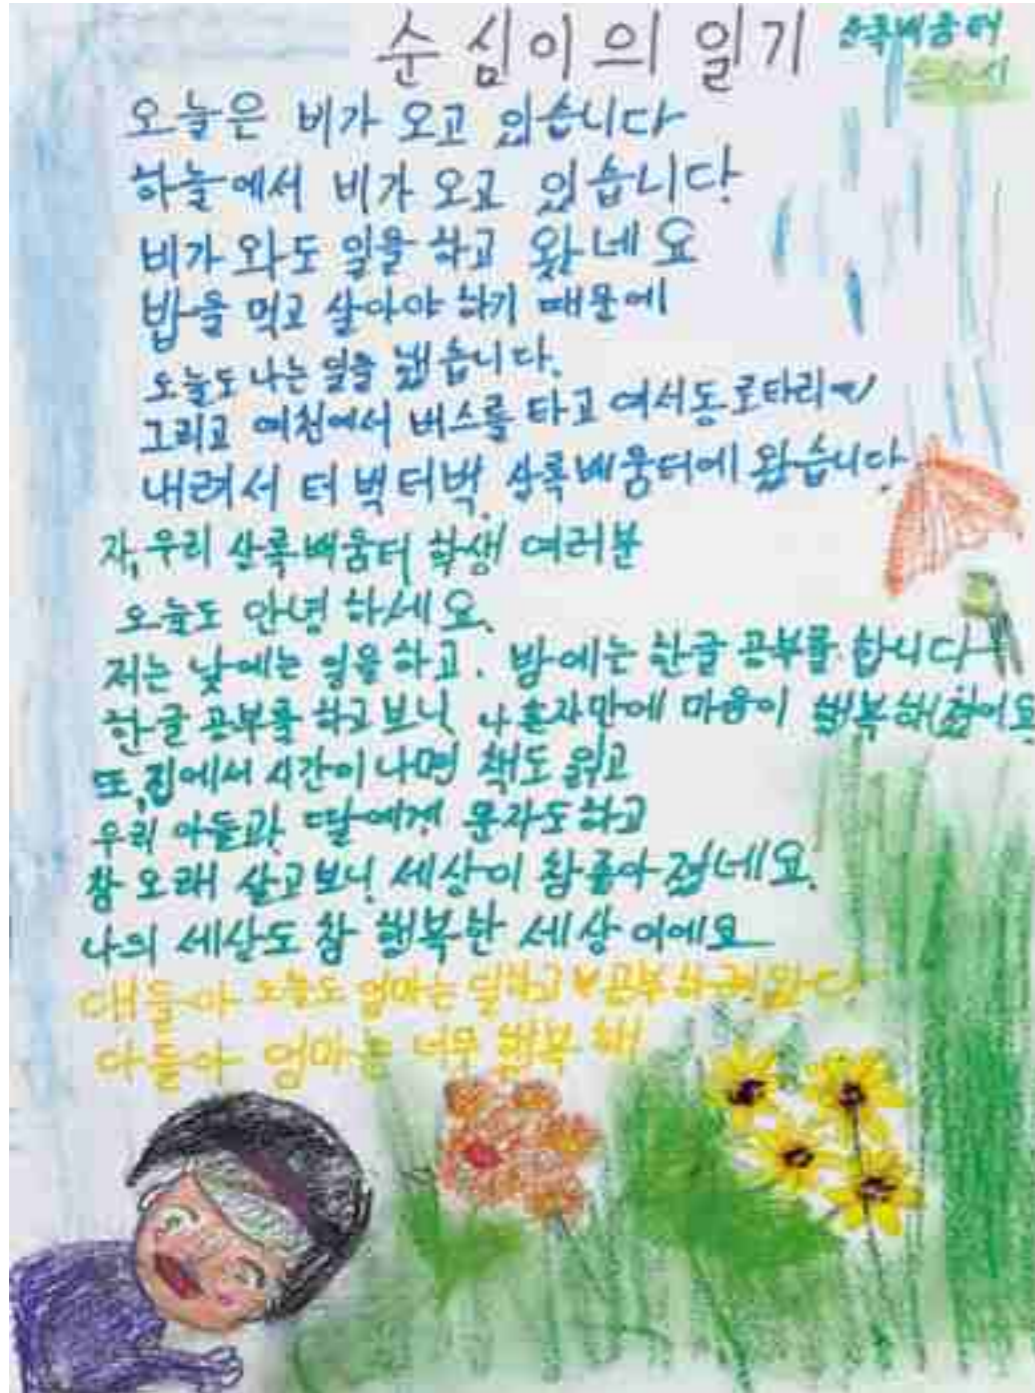 순심이의 일기
산록배움터
오늘은 비가 오고 있습니다
하늘에서 비가 오고 있습니다
비가 와도 일을 하고 왔네요
밥을 먹고 살아야 하기 때문에
오늘도 나는 일을 했습니다.
그리고 여천에서 버스를 타고 여서동 로타리에
내려서 터벅터벅 산록배움터에 왔습니다
자, 우리 산록배움터 학생 여러분
오늘도 안녕 하세요.
저는 낮에는 일을 하고. 밤에는 한글 공부를 합니다
한글 공부를 하고보니 나 혼자만에 마음이 행복해졌어요
또, 집에서 시간이 나면 책도 읽고
우리 아들과 딸에게 문자도하고
참 오래 살고보니 세상이 참 좋아 졌네요.
나의 세상도 참 행복한 세상 이에요
오늘도 엄마는 일하고 공부
아들아 엄마는 너무 행복 해